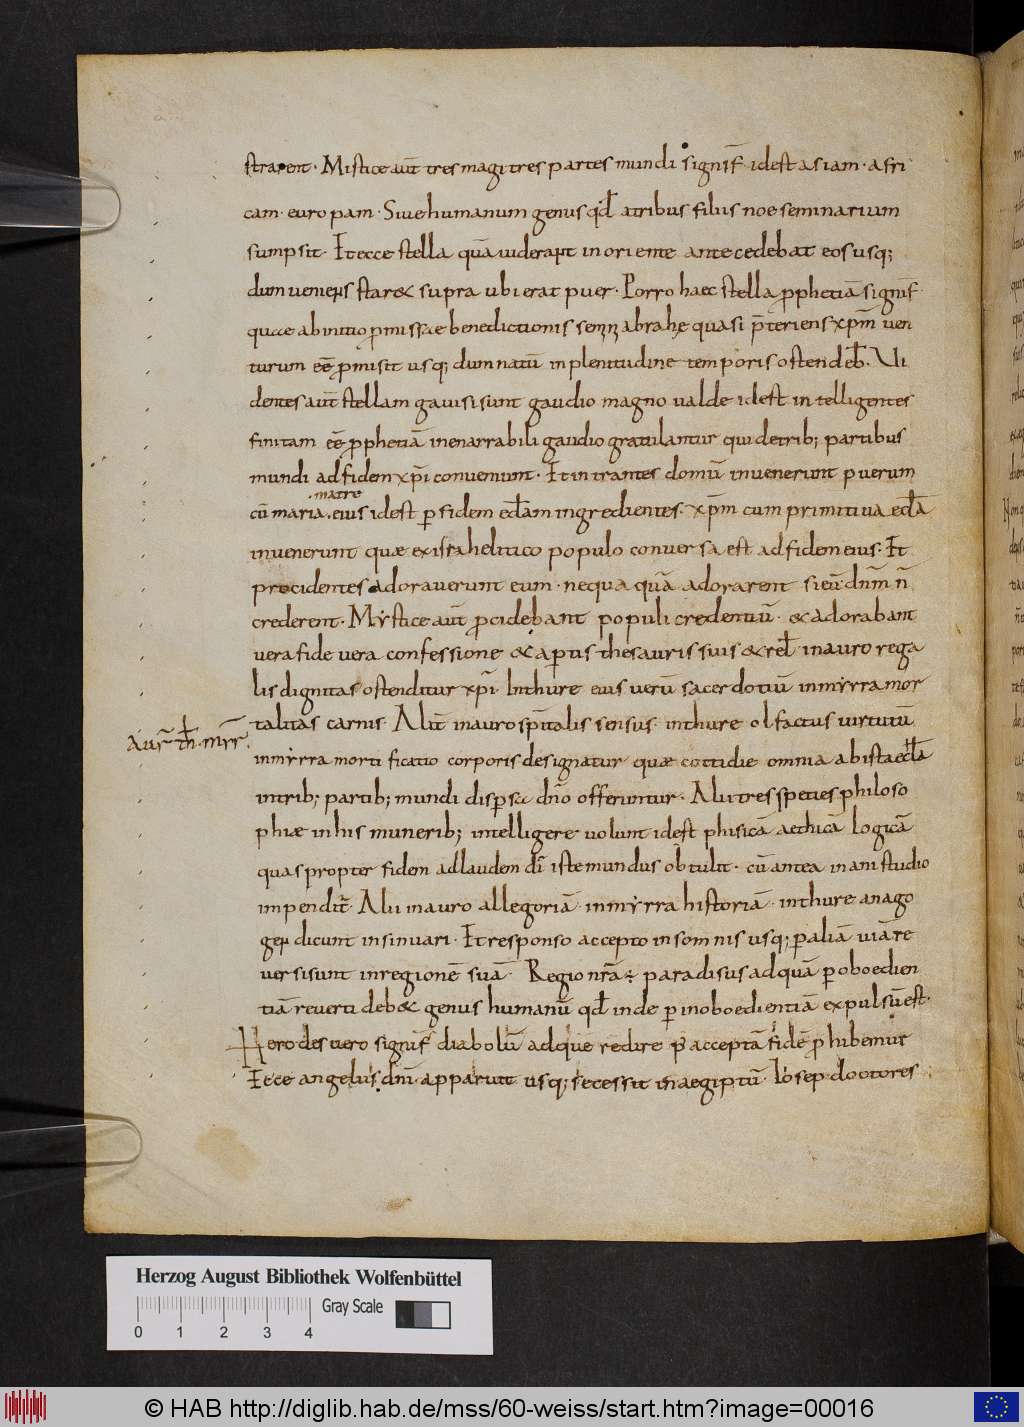 strarent· Mistice aut̄ tres magi tres partes mundi signif̄ idest asiam· afri
cam· europam· Siue humanum genus qđ atribus filiis noe seminarium
sumpsit· Et ecce stella quā uiderant in oriente antecedebat eos usq;
dum ueniens staret supra ubi erat puer· Porro haec stella p̄phetiā signif̄
quae abinitio p̄missae benedictionis abrahę quasi p̄teriens xp̄m uen
turum eē p̄misit usq; dum natū inplenitudine temporis ostendeb̄· Ui
dentes aut̄ stellam gauisi sunt gaudio magno ualde idest intelligentes
finitam eē p̄phetiā inenarrabili gaudio gratulantur qui detrib; partibus
mundi adfidem xp̄i conueniunt· Et intrantes domū inuenerunt puerum
·matre·
cū maria·eius idest p̄ fidem eccl̄am ingredientes· xp̄m cum primitiua eccl̄a
inuenerunt quæ exisrahelitico populo conuersa est adfidem eius· Et
procidentes adorauerunt eum· nequaquā adorarent si eū dn̄m n̄
crederent· Mystice aut̄ p̄cidebant populi credentiū· & adorabant
uera fide uera confessione & apertis thesauris suis & rel̄ inauro rega
lis dignitas ostenditur xp̄i Inthure eius uerū sacerdotiū inmyrra mor
talitas carnis· Alii inauro sp̄italis sensus· inthure olfactus uirtutū
Aur̄· th̄· mȳrr̄·
inmyrra mortificatio corporis designatur quæ cottidie omnia abista eccl̄a
intrib; partib; mundi dispersa dn̄o offeruntur· Alii tres species philoso
phiæ inhis munerib; intelligere uolunt idest phisicā aethicā logicā
quas propter fidem adlaudem dī iste mundus obtulit· cū antea inani studio
impendit̄· Alii inauro allegoriā· inmyrra historiā· inthure anago
gen dicunt insinuari· Et responso accepto insomnis usq; p̄aliā uiā re
uersi sunt inregionē suā· Regio nr̄a ÷ paradisus adquā p̄oboedien
tiā reuerti deb& genus humanū qđ inde p̄inoboedientiā expulsū est·
Herodes uero signif̄ diabolū adquē redire p̄ acceptā fidē p̄hibemur
Ecce angelus dn̄i apparuit usq; secessit in aegiptū· Iosep doctores
Herzog August Bibliothek Wolfenbüttel
Gray Scale
0 1 2 3 4
© HAB http://diglib.hab.de/mss/60-weiss/start.htm?image=00016